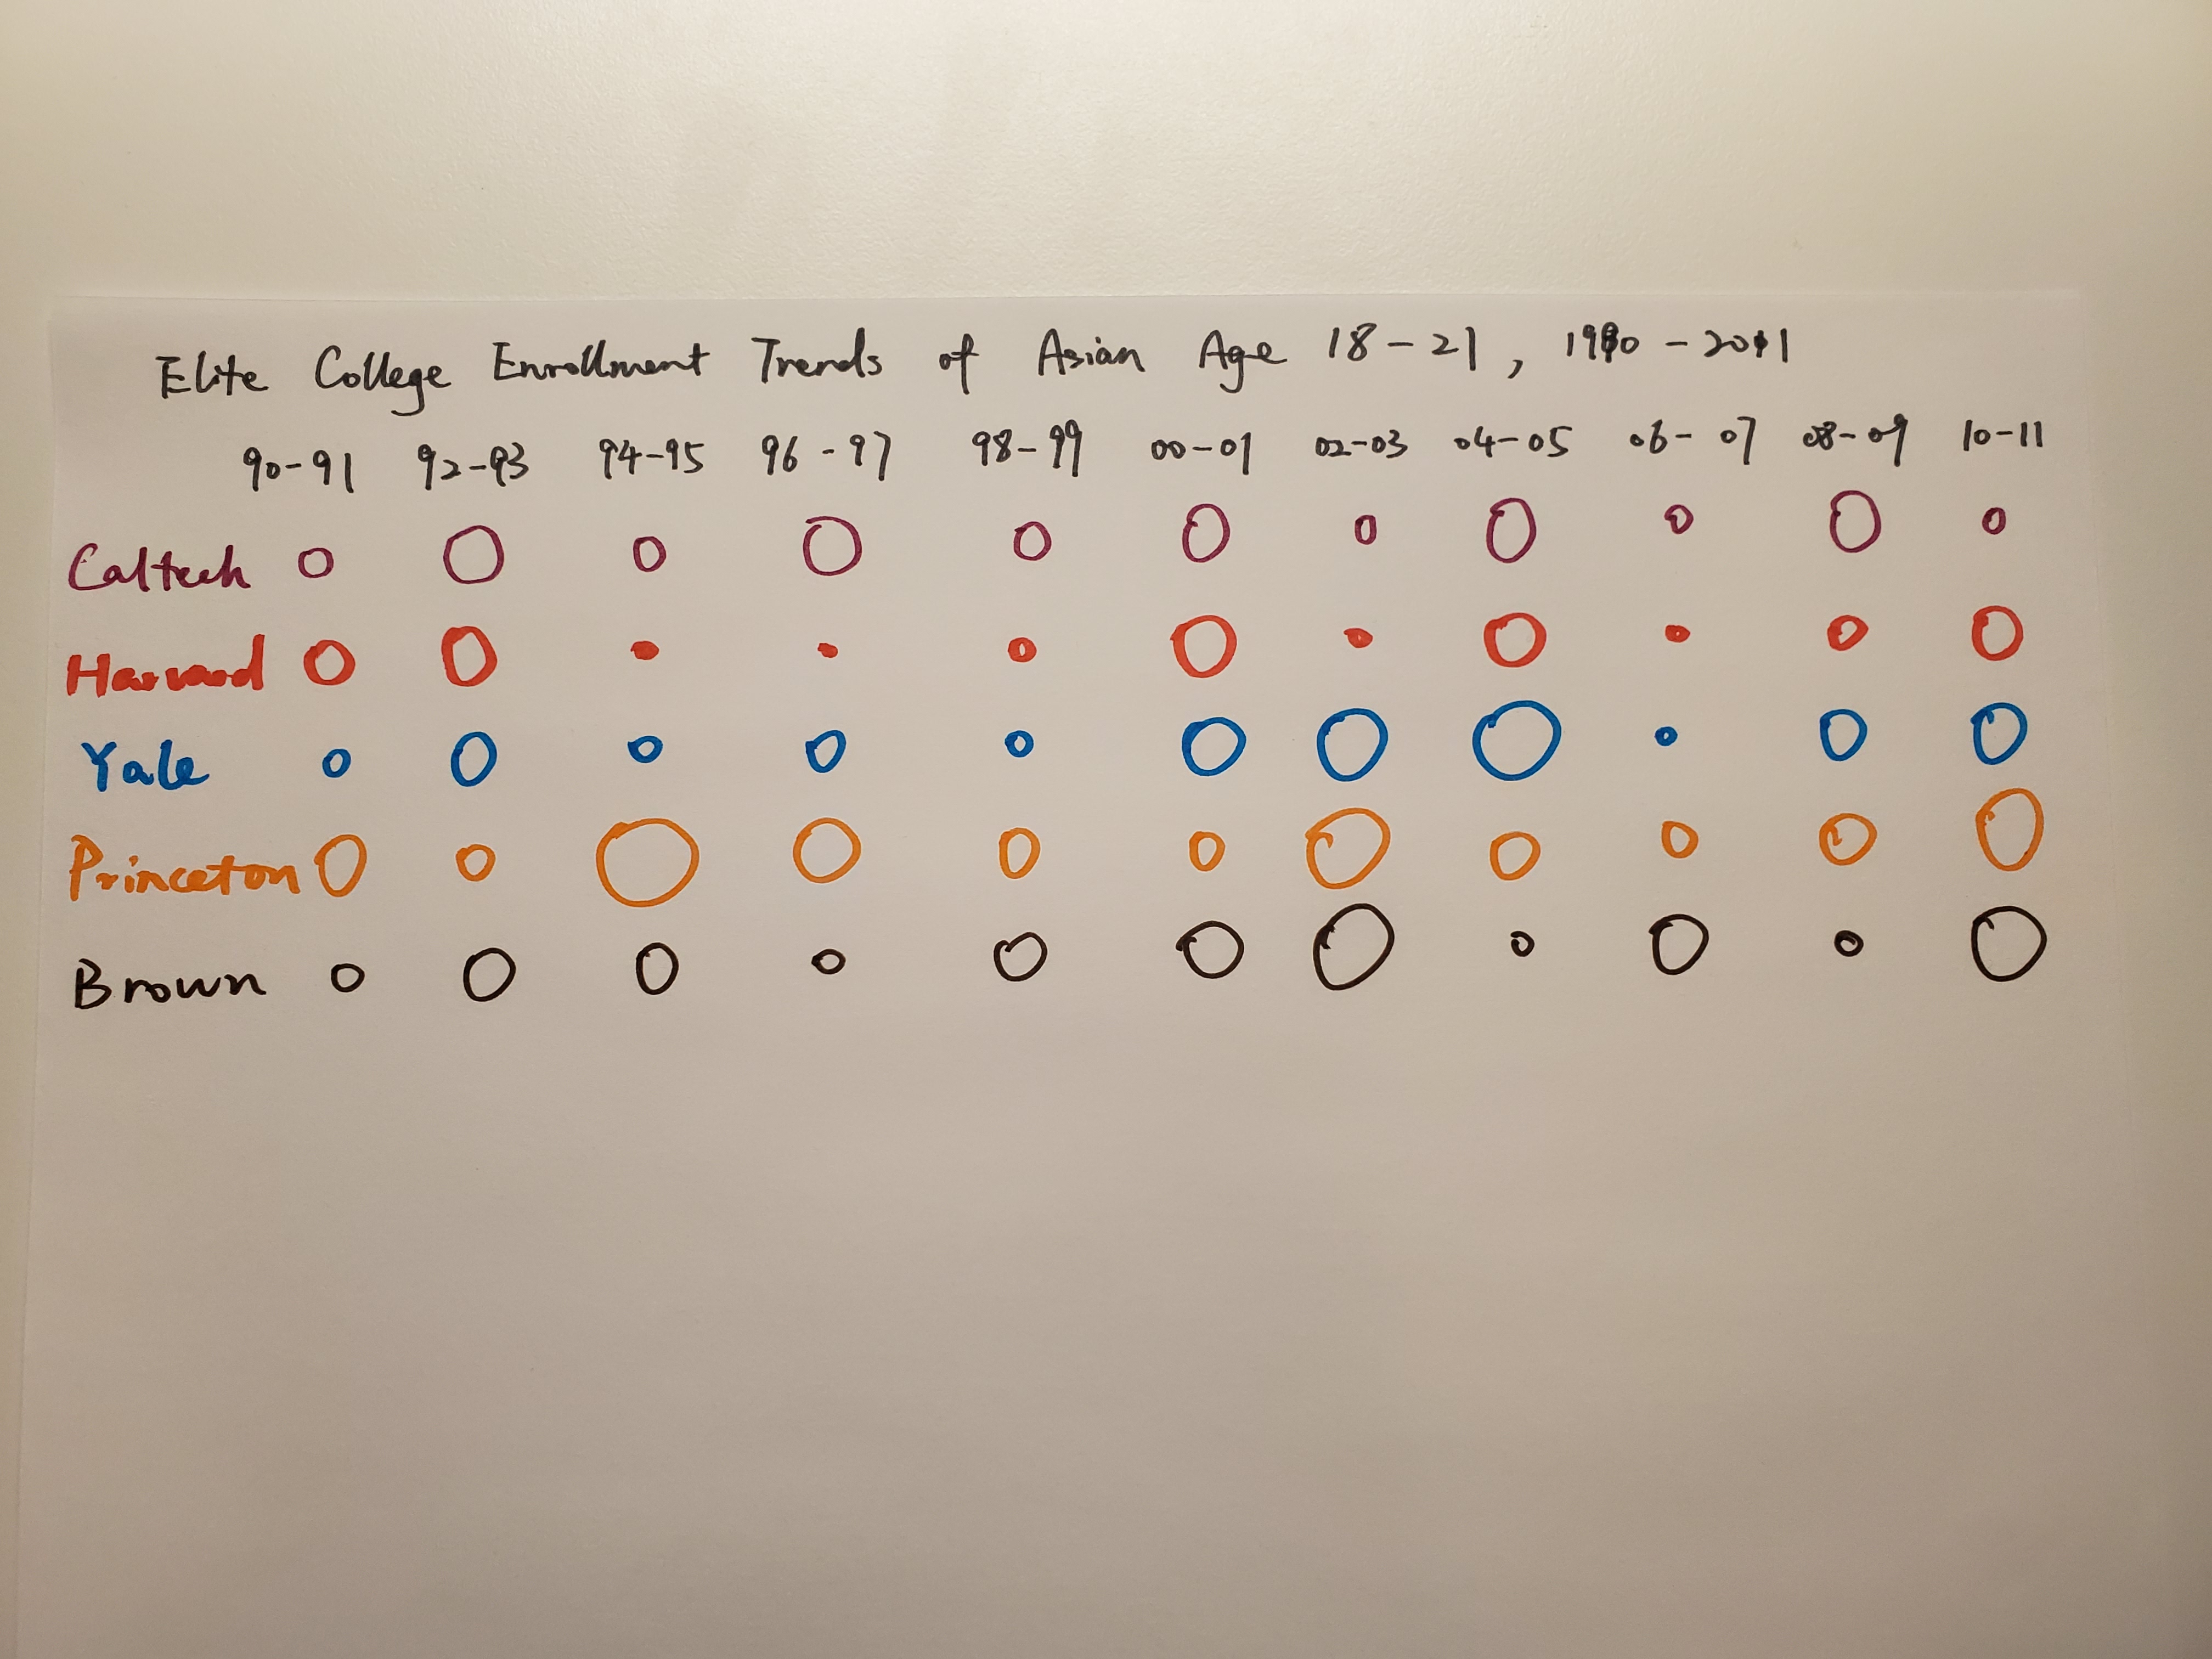 Elite College Enrollment Trends of Asian Age 18-21, 1990-2011
90-91 92-93 94-95 96-97 98-99 00-01 02-03 04-05 06-07 08-09 10-11
Caltech
Harvard
Yale
Princeton
Brown